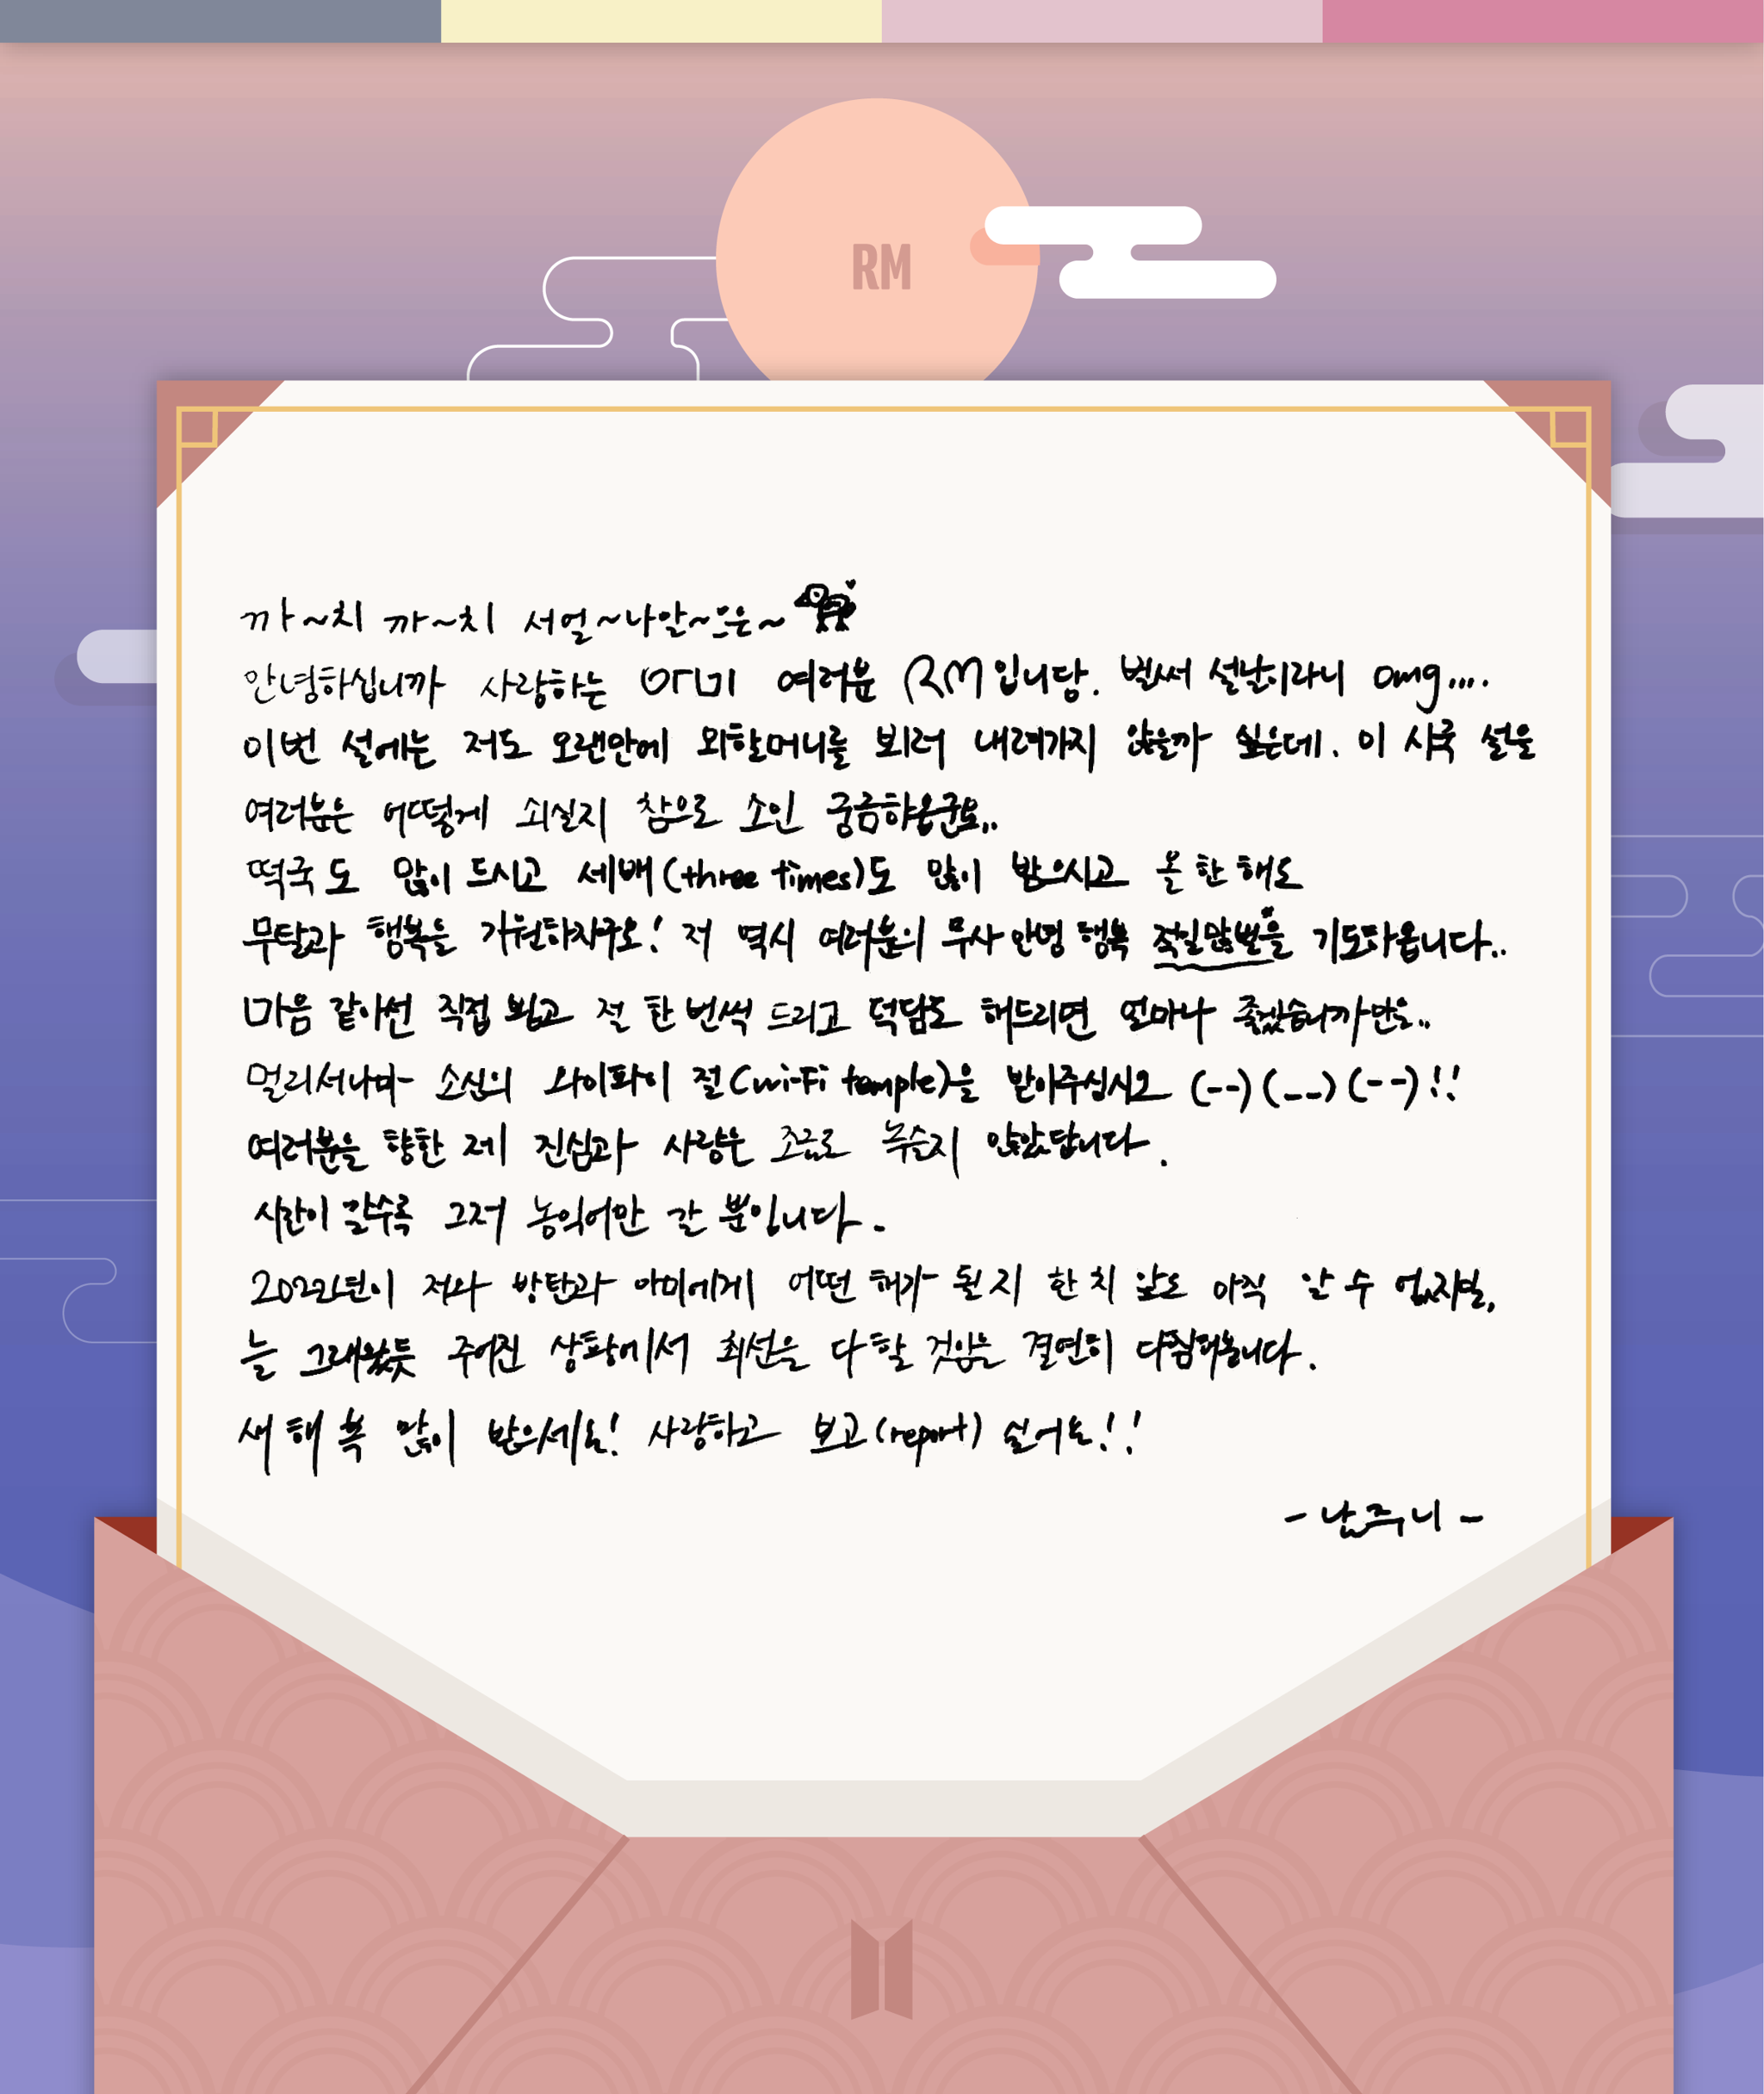 RM
까~치 까~치 서얼~나알~으은~
안녕하십니까 사랑하는 아미 여러분 RM입니당. 벌써 설날이라니 omg....
이번 설에는 저도 오랜만에 외할머니를 뵈러 내려가지 않을까 싶은데. 이 시국 설을
여러분은 어떻게 쇠실지 참으로 소인 궁금하옵군요..
떡국도 많이 드시고 세배(three times)도 많이 받으시고 올 한 해도
무탈과 행복을 기원하자구요! 저 역시 여러분의 무사 안녕 행복 을 기도하옵니다..
마음 같아선 직접 뵙고 절 한 번씩 드리고 덕담도 해드리면 얼마나 좋겠습니까만은..
멀리서나마 소신의 와이파이 절(wi-fi temple)을 받아주십시오 (--)(__)(--)!!
여러분을 향한 제 진심과 사랑은 조금도 녹슬지 않았답니다.
시간이 갈수록 그저 농익어만 갈 뿐입니다.
2022년이 저와 방탄과 아미에게 어떤 해가 될지 한 치 앞도 아직 알 수 없지만,
늘 그래왔듯 주어진 상황에서 최선을 다할 것임을 결연히 다짐해봅니다.
새해 복 많이 받으세요! 사랑하고 보고(report) 싶어요!!
- 남주니 -